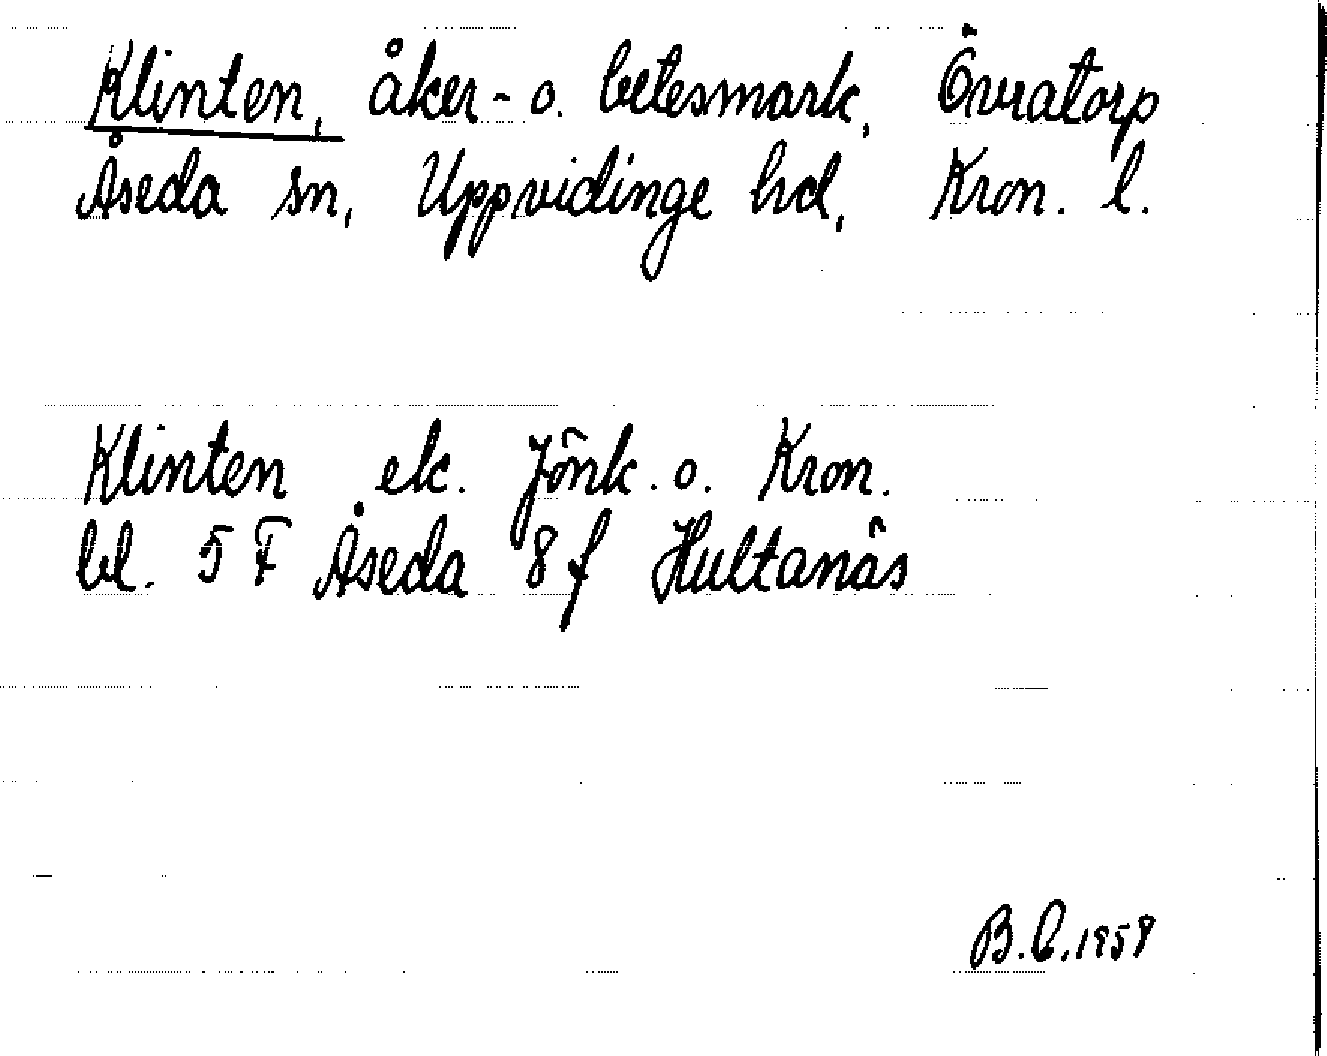 Klinten, åker- o. betesmark, Övratorp
Åseda sn, Uppvidinge hd, Kron. l.
Klinten ek. Jönk. o. Kron.
bl. 5 F Åseda 8 f Hultanäs
B.C. 1959